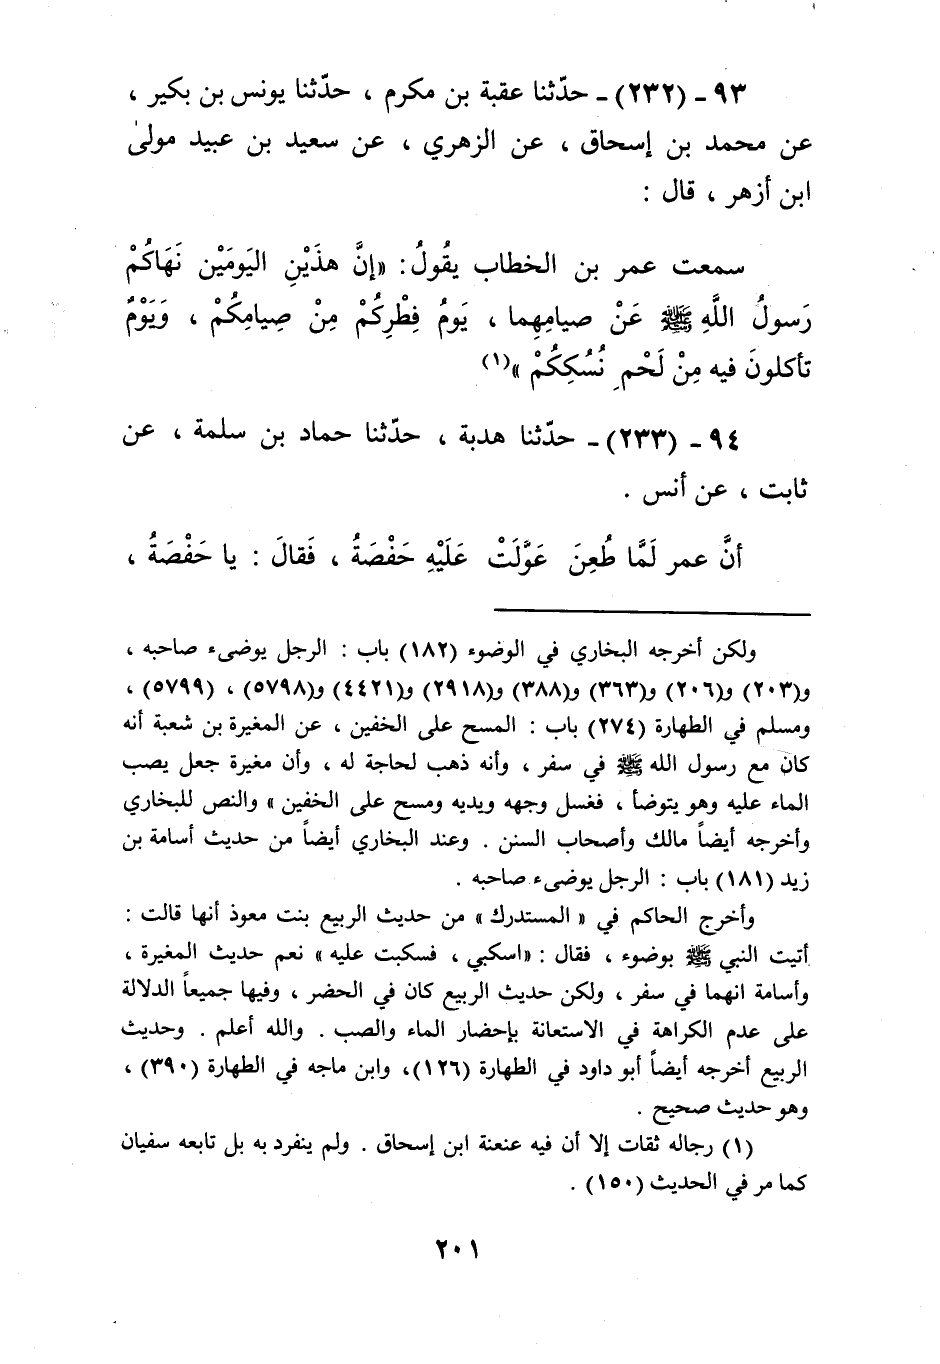 ٩٣ ـ (٢٣٢) ـ حدّثنا عقبة بن مكرم ، حدّثنا يونس بن بكير ،
عن محمد بن إسحاق ، عن الزهري ، عن سعيد بن عبيد مولىٰ
ابن أزهر ، قال :
سمعت عمر بن الخطاب يقُولُ: «إنَّ هذَيْنِ اليَومَيْن نَهَاكُمْ
رَسولُ اللَّهِ ﷺ عَنْ صيامِهِما ، يَومُ فِطْرِكُمْ مِنْ صِيامِكُمْ ، وَيَوْمٌ
تأكلونَ فيه مِنْ لَحْمِ نُسُكِكُمْ »(١)
٩٤ ـ (٢٣٣) ـ حدّثنا هدبة ، حدّثنا حماد بن سلمة ، عن
ثابت ، عن أنس .
أنَّ عمر لَمَّا طُعِنَ عَوَّلَتْ عَلَيْهِ حَفْصَةُ ، فَقالَ : يا حَفْصَةُ ،
ولكن أخرجه البخاري في الوضوء (١٨٢) باب : الرجل يوضىء صاحبه ،
و(٢٠٣) و(٢٠٦) و(٣٦٣) و(٣٨٨) و(٢٩١٨) و(٤٤٢١) و(٥٧٩٨) ، (٥٧٩٩) ،
ومسلم في الطهارة (٢٧٤) باب : المسح على الخفين ، عن المغيرة بن شعبة أنه
كان مع رسول الله ﷺ في سفر ، وأنه ذهب لحاجة له ، وأن مغيرة جعل يصب
الماء عليه وهو يتوضأ ، فغسل وجهه ويديه ومسح على الخفين » والنص للبخاري
وأخرجه أيضاً مالك وأصحاب السنن . وعند البخاري أيضاً من حديث أسامة بن
زيد (١٨١) باب : الرجل يوضىء صاحبه .
وأخرج الحاكم في « المستدرك » من حديث الربيع بنت معوذ أنها قالت :
أتيت النبي ﷺ بوضوء ، فقال : «اسكبي ، فسكبت عليه » نعم حديث المغيرة ،
وأسامة انهما في سفر ، ولكن حديث الربيع كان في الحضر ، وفيها جميعاً الدلالة
على عدم الكراهة في الاستعانة بإحضار الماء والصب . والله أعلم . وحديث
الربيع أخرجه أيضاً أبو داود في الطهارة (١٢٦)، وابن ماجه في الطهارة (٣٩٠) ،
وهو حديث صحيح .
(١) رجاله ثقات إلا أن فيه عنعنة ابن إسحاق . ولم ينفرد به بل تابعه سفيان
كما مر في الحديث (١٥٠) .
٢٠١